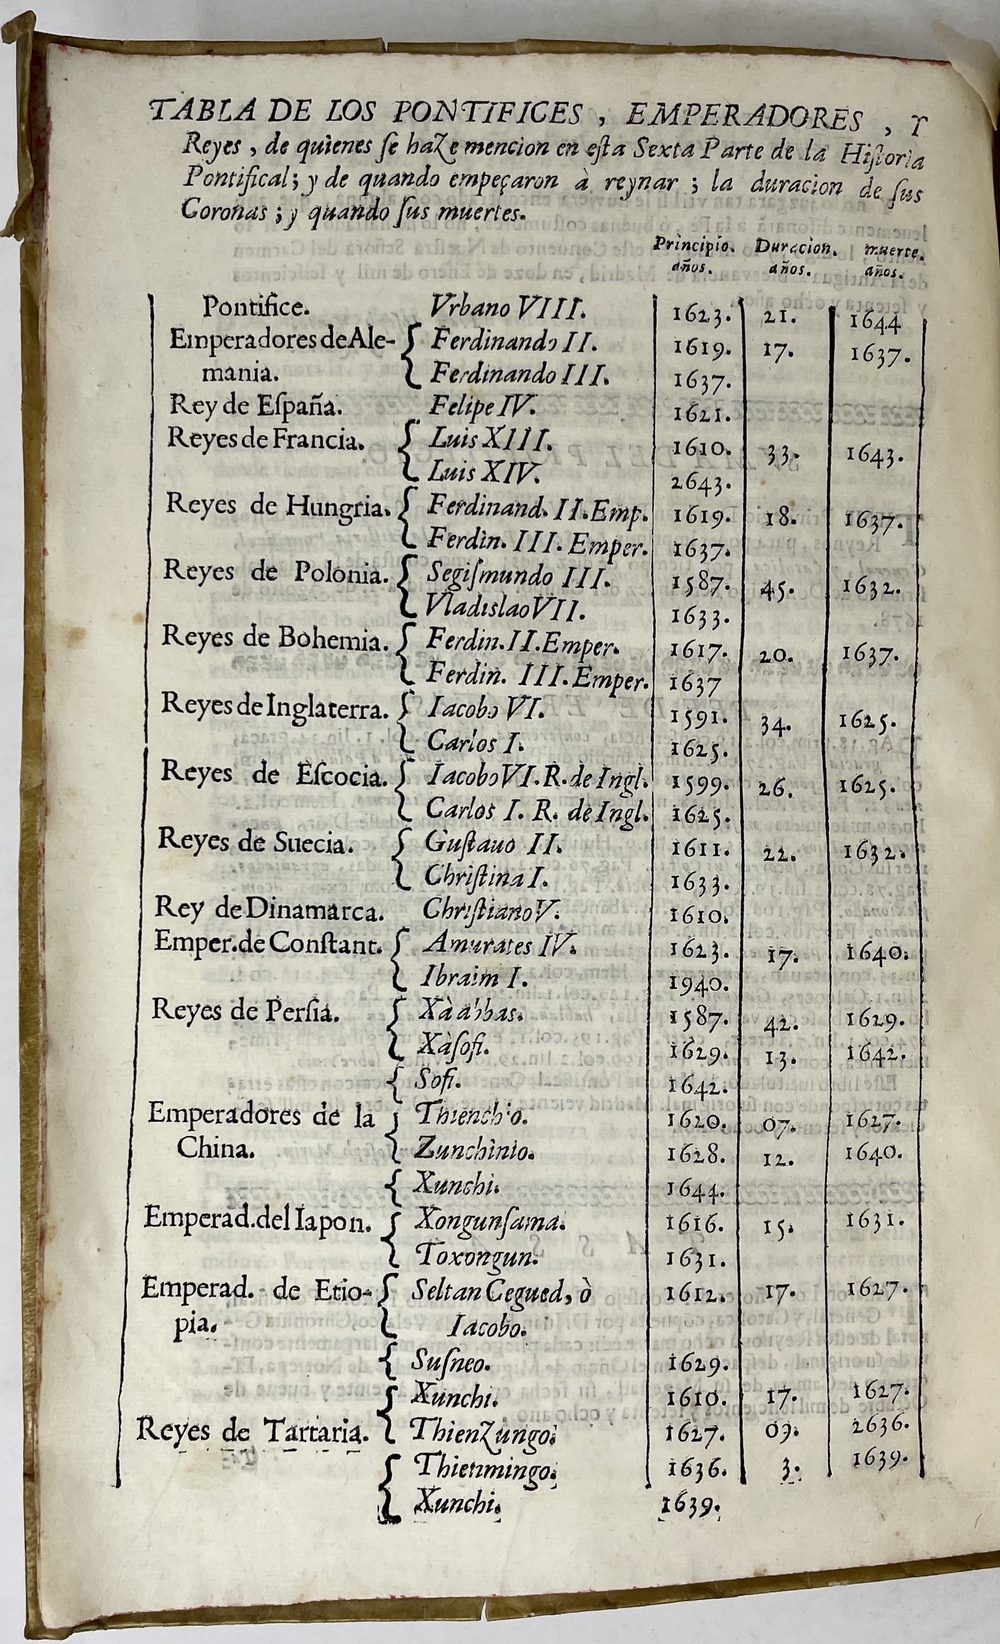 TABLA DE LOS PONTIFICES , EMPERADORES , Y
Reyes , de quienes ſe haze mencion en eſta Sexta Parte de la Hiſtoria
Pontifical; y de quando empeçaron à reynar ; la duracion de ſus
Coronas ; y quando ſus muertes.
Principio. Duracion. muerte.
años. años. años.
Pontifice. Vrbano VIII. 1623. 21. 1644
Emperadores de Ale- { Ferdinando II. 1619. 17. 1637.
mania. Ferdinando III. 1637.
Rey de Eſpaña. Felipe IV. 1621.
Reyes de Francia. { Luis XIII. 1610. 33. 1643.
Luis XIV. 2643.
Reyes de Hungria. { Ferdinand. II. Emp. 1619. 18. 1637.
Ferdin. III. Emper. 1637.
Reyes de Polonia. { Segiſmundo III. 1587. 45. 1632.
Vladislao VII. 1633.
Reyes de Bohemia. { Ferdin. II. Emper. 1617. 20. 1637.
Ferdin. III. Emper. 1637
Reyes de Inglaterra. { Iacobo VI. 1591. 34. 1625.
Carlos I. 1625.
Reyes de Eſcocia. { Iacobo VI. R. de Ingl. 1599. 26. 1625.
Carlos I. R. de Ingl. 1625.
Reyes de Suecia. { Guſtauo II. 1611. 22. 1632.
Chriſtina I. 1633.
Rey de Dinamarca. Chriſtiano V. 1610.
Emper. de Conſtant. { Amurates IV. 1623. 17. 1640.
Ibraim I. 1940.
Reyes de Perſia. { Xà abbas. 1587. 42. 1629.
Xàſofi. 1629. 13. 1642.
{ Sofi. 1642.
Emperadores de la { Thienchio. 1620. 07. 1627.
China. Zunchinio. 1628. 12. 1640.
{ Xunchi. 1644.
Emperad. del Iapon. { Xongunſama. 1616. 15. 1631.
Toxongun. 1631.
Emperad. de Etio- { Seltan Cegued, ò 1612. 17. 1627.
pia. Iacobo.
{ Suſneo. 1629.
{ Xunchi. 1610. 17. 1627.
Reyes de Tartaria. Thienzungo. 1627. 09. 2636.
{ Thienmingo. 1636. 3. 1639.
Xunchi. 1639.